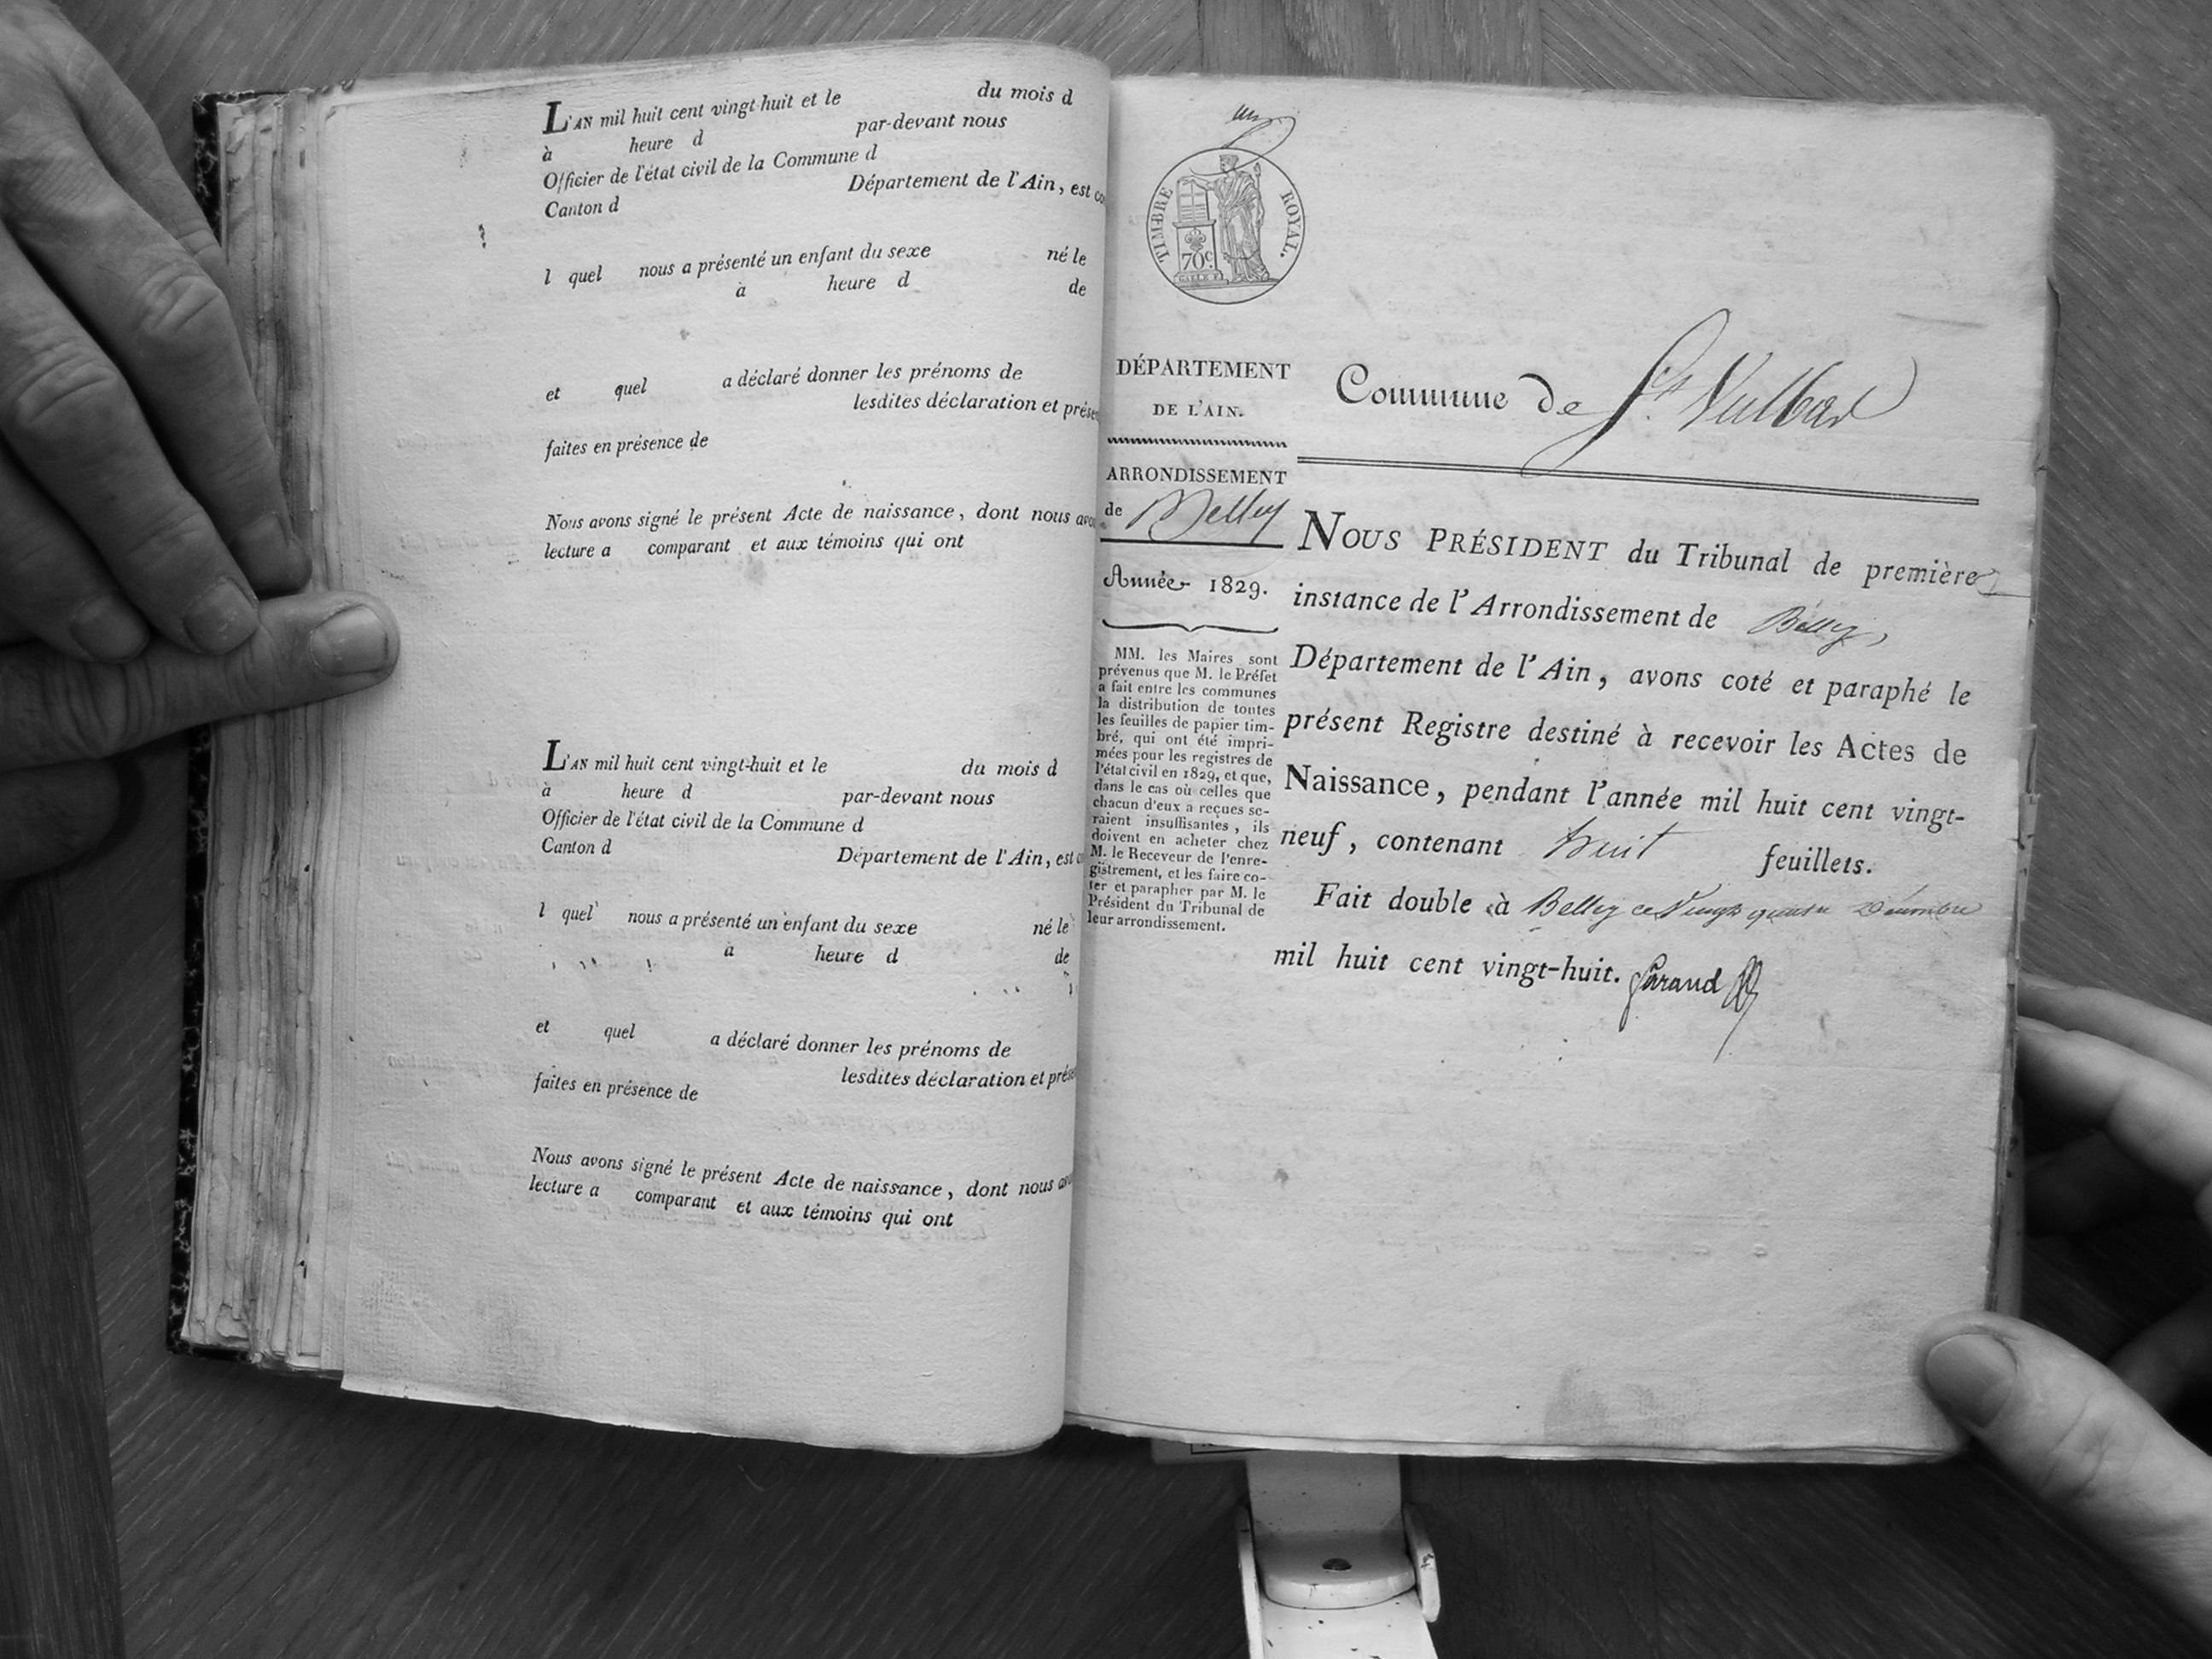 L'AN mil huit cent vingt-huit et le du mois d
à heure d par-devant nous
Officier de l'état civil de la Commune d
Canton d Département de l'Ain, est co
l quel nous a présenté un enfant du sexe né le
à heure d de
et quel a déclaré donner les prénoms de
lesdites déclaration et prése
faites en présence de
Nous avons signé le présent Acte de naissance, dont nous avo
lecture a comparant et aux témoins qui ont
L'AN mil huit cent vingt-huit et le du mois d
à heure d par-devant nous
Officier de l'état civil de la Commune d
Canton d Département de l'Ain, est c
l quel nous a présenté un enfant du sexe né le
à heure d de
et quel a déclaré donner les prénoms de
lesdites déclaration et prése
faites en présence de
Nous avons signé le présent Acte de naissance, dont nous av
lecture a comparant et aux témoins qui ont
un
TIMBRE ROYAL.
70c
DÉPARTEMENT
DE L'AIN.
ARRONDISSEMENT
de Belley
Année 1829.
MM. les Maires sont
prévenus que M. le Préfet
a fait entre les communes
la distribution de toutes
les feuilles de papier tim-
bré, qui ont été impri-
mées pour les registres de
l'état civil en 1829, et que,
dans le cas où celles que
chacun d'eux a reçues se-
raient insuffisantes, ils
doivent en acheter chez
M. le Receveur de l'enre-
gistrement, et les faire co-
ter et parapher par M. le
Président du Tribunal de
leur arrondissement.
Commune de St. Vulbas
NOUS PRÉSIDENT du Tribunal de première
instance de l'Arrondissement de Belley,
Département de l'Ain, avons coté et paraphé le
présent Registre destiné à recevoir les Actes de
Naissance, pendant l'année mil huit cent vingt-
neuf, contenant huit feuillets.
Fait double à Belley ce Vingt quatre Décembre
mil huit cent vingt-huit. Garaud